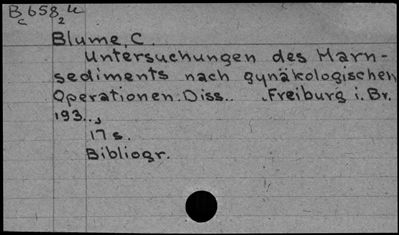 Bc658,2u
Blume, C.
Untersuchungen des Harn-
sediments nach gynäkologischen
Operationen. Diss.. Freiburg i. Br.
193..,
17 s.
Bibliogr.